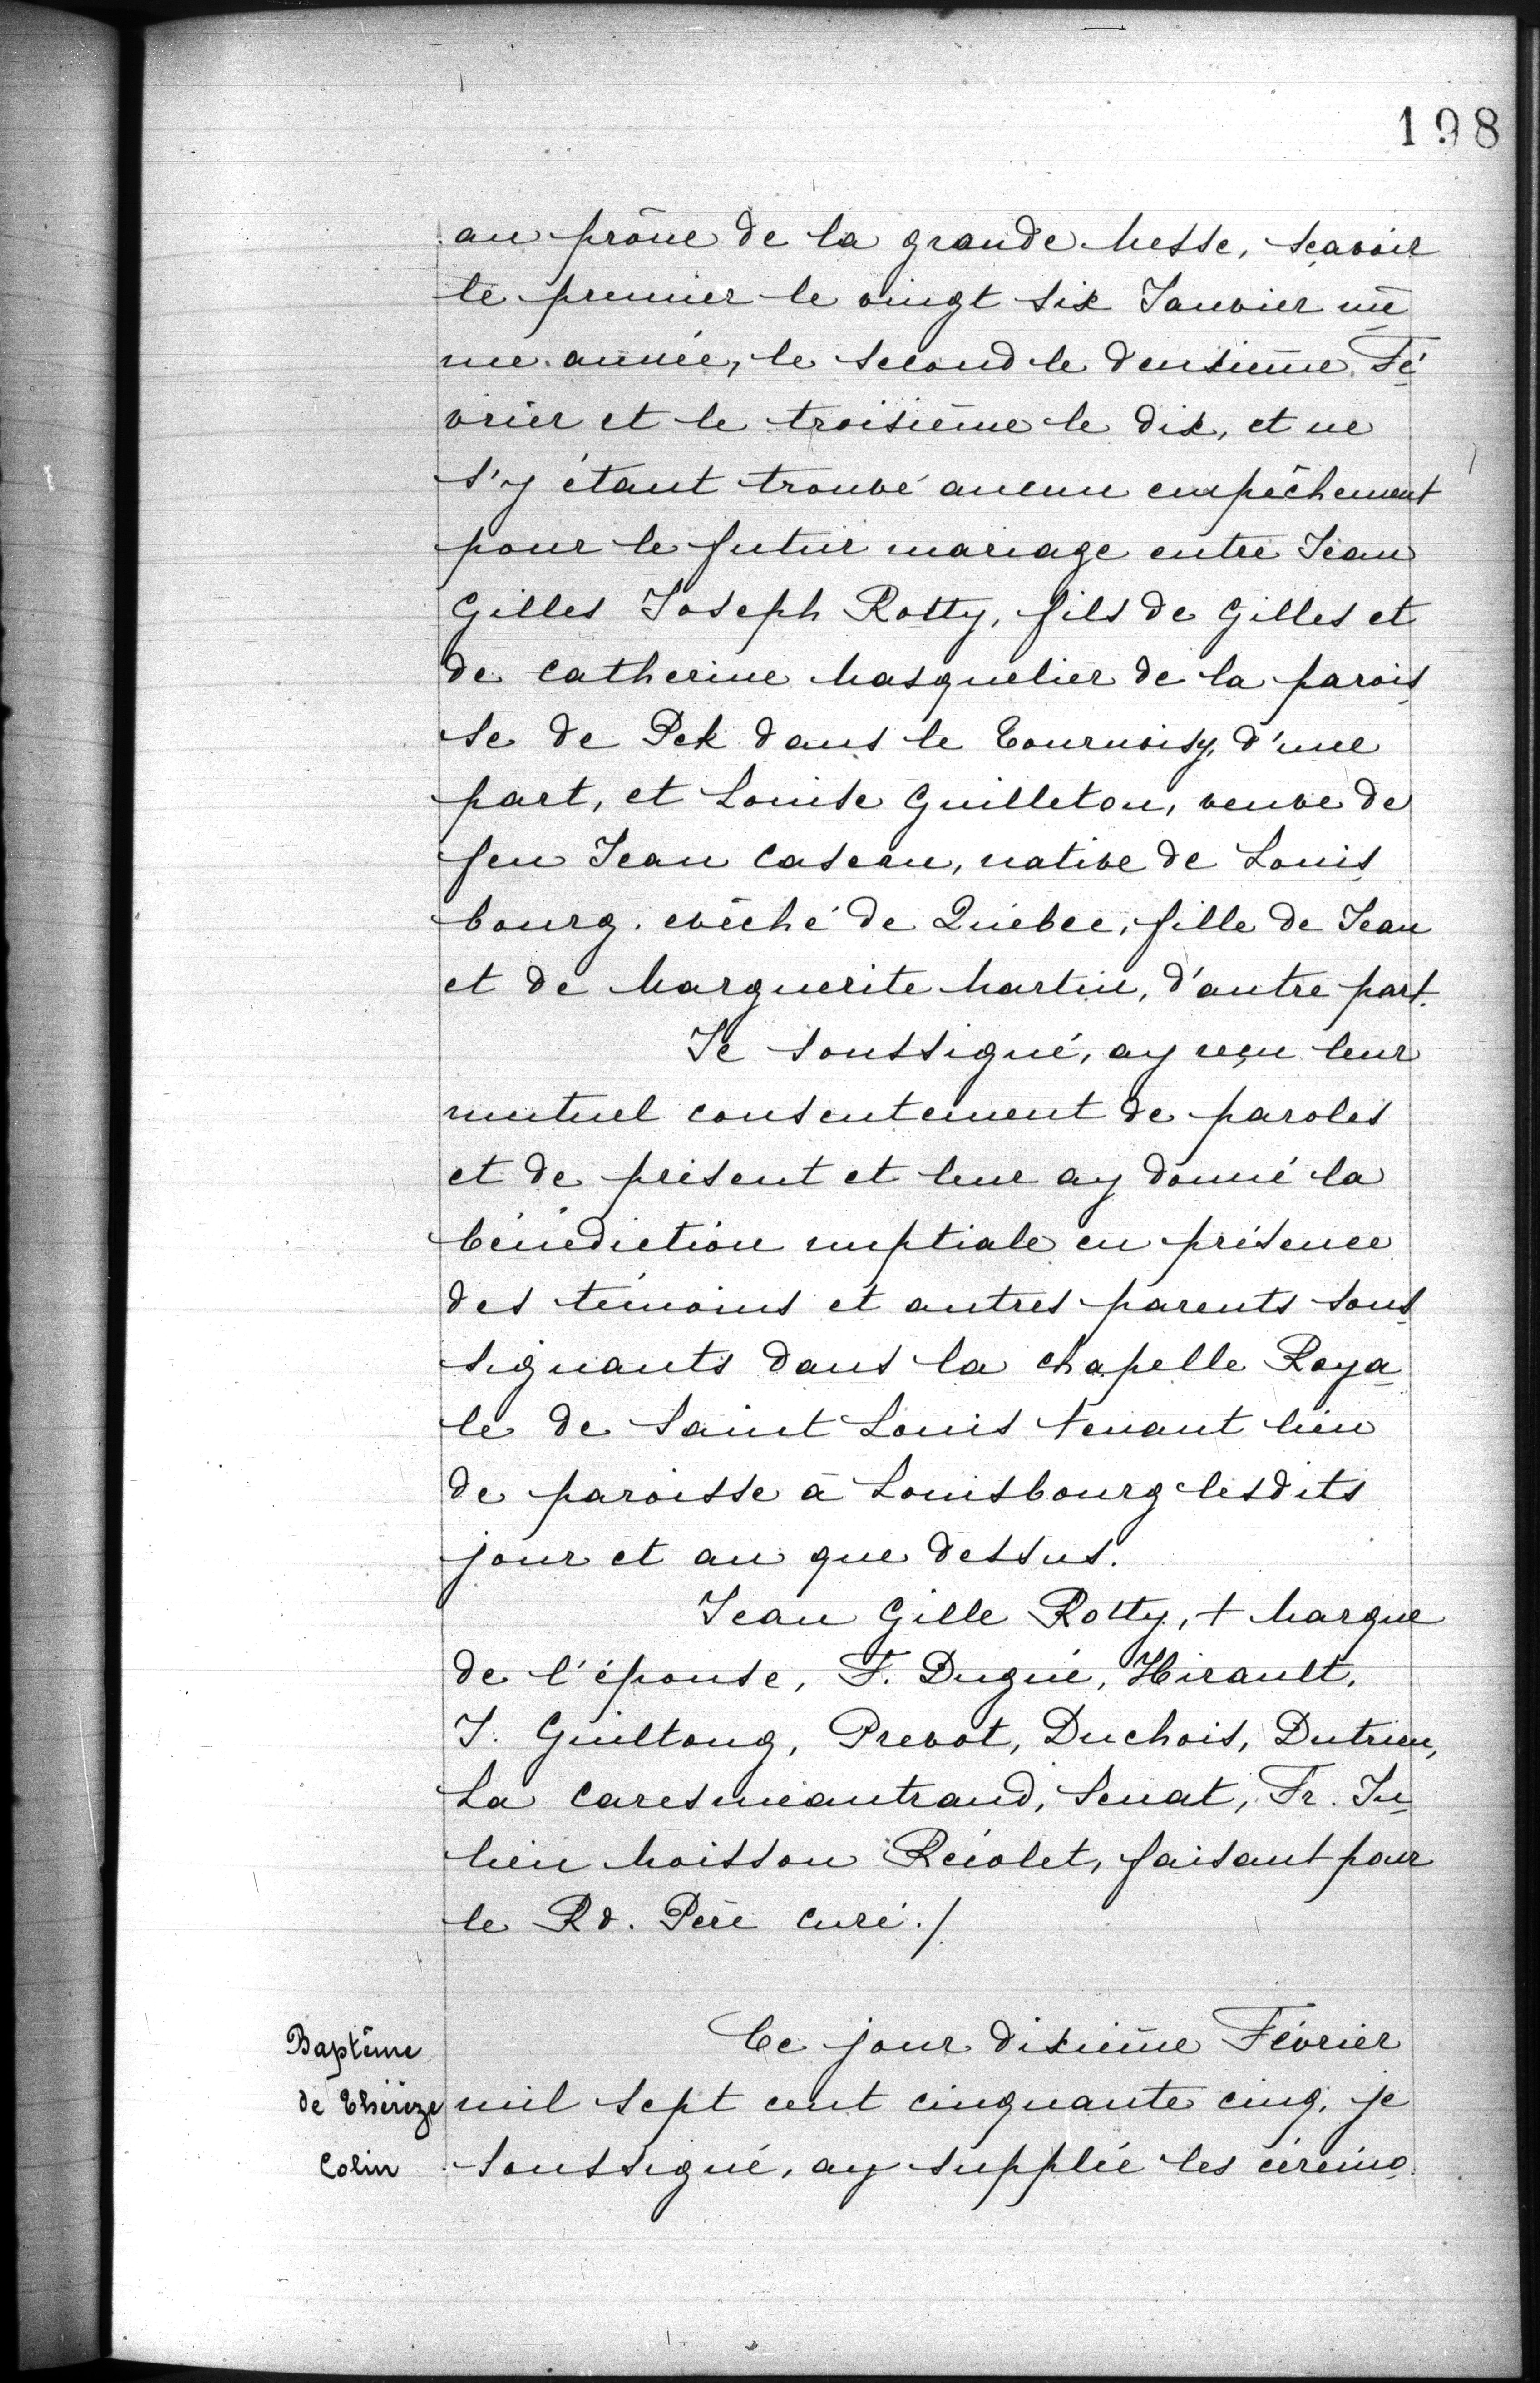 198
au prône de la grande Messe, sçavoir
le premier le vingt six Janvier mê
me année, le second le deuxième Fé
vrier et le troisième le dix, et ne
s'y étant trouvé aucun empêchement
pour le futur mariage entre Jean
Gilles Joseph Rotty, fils de Gilles et
de Catherine Masquelier de la parois
se de Pek dans le Tournoisy, d'une
part, et Louise Guilleton, veuve de
feu Jean Caseau, native de Louis
bourg. evêché de Québec, fille de Jean
et de Marguerite Martin, d'autre part.
Je soussigné, ay reçu leur
mutuel consentement de paroles
et de présent et leur ay donné la
bénédiction nuptiale en présence
des témoins et autres parents sous
signants dans la chapelle Roya
le de Saint Louis tenant lieu
de paroisse à Louisbourg lesdits
jour et an que dessus.
Jean Gille Rotty, + Marque
de l'épouse, F. Dugué, Hirault,
J. Guiltong, Prevot, Duchois, Dutrieu,
La Caresmeantrand, Senat, Fr. Ju
lien Moisson Récolet, faisant pour
le Rd. Père Curé./
Baptême
de Thérèze
Colin
Ce jour dixième Février
mil sept cent cinquante cinq, je
soussigné, ay supplée les cérémo